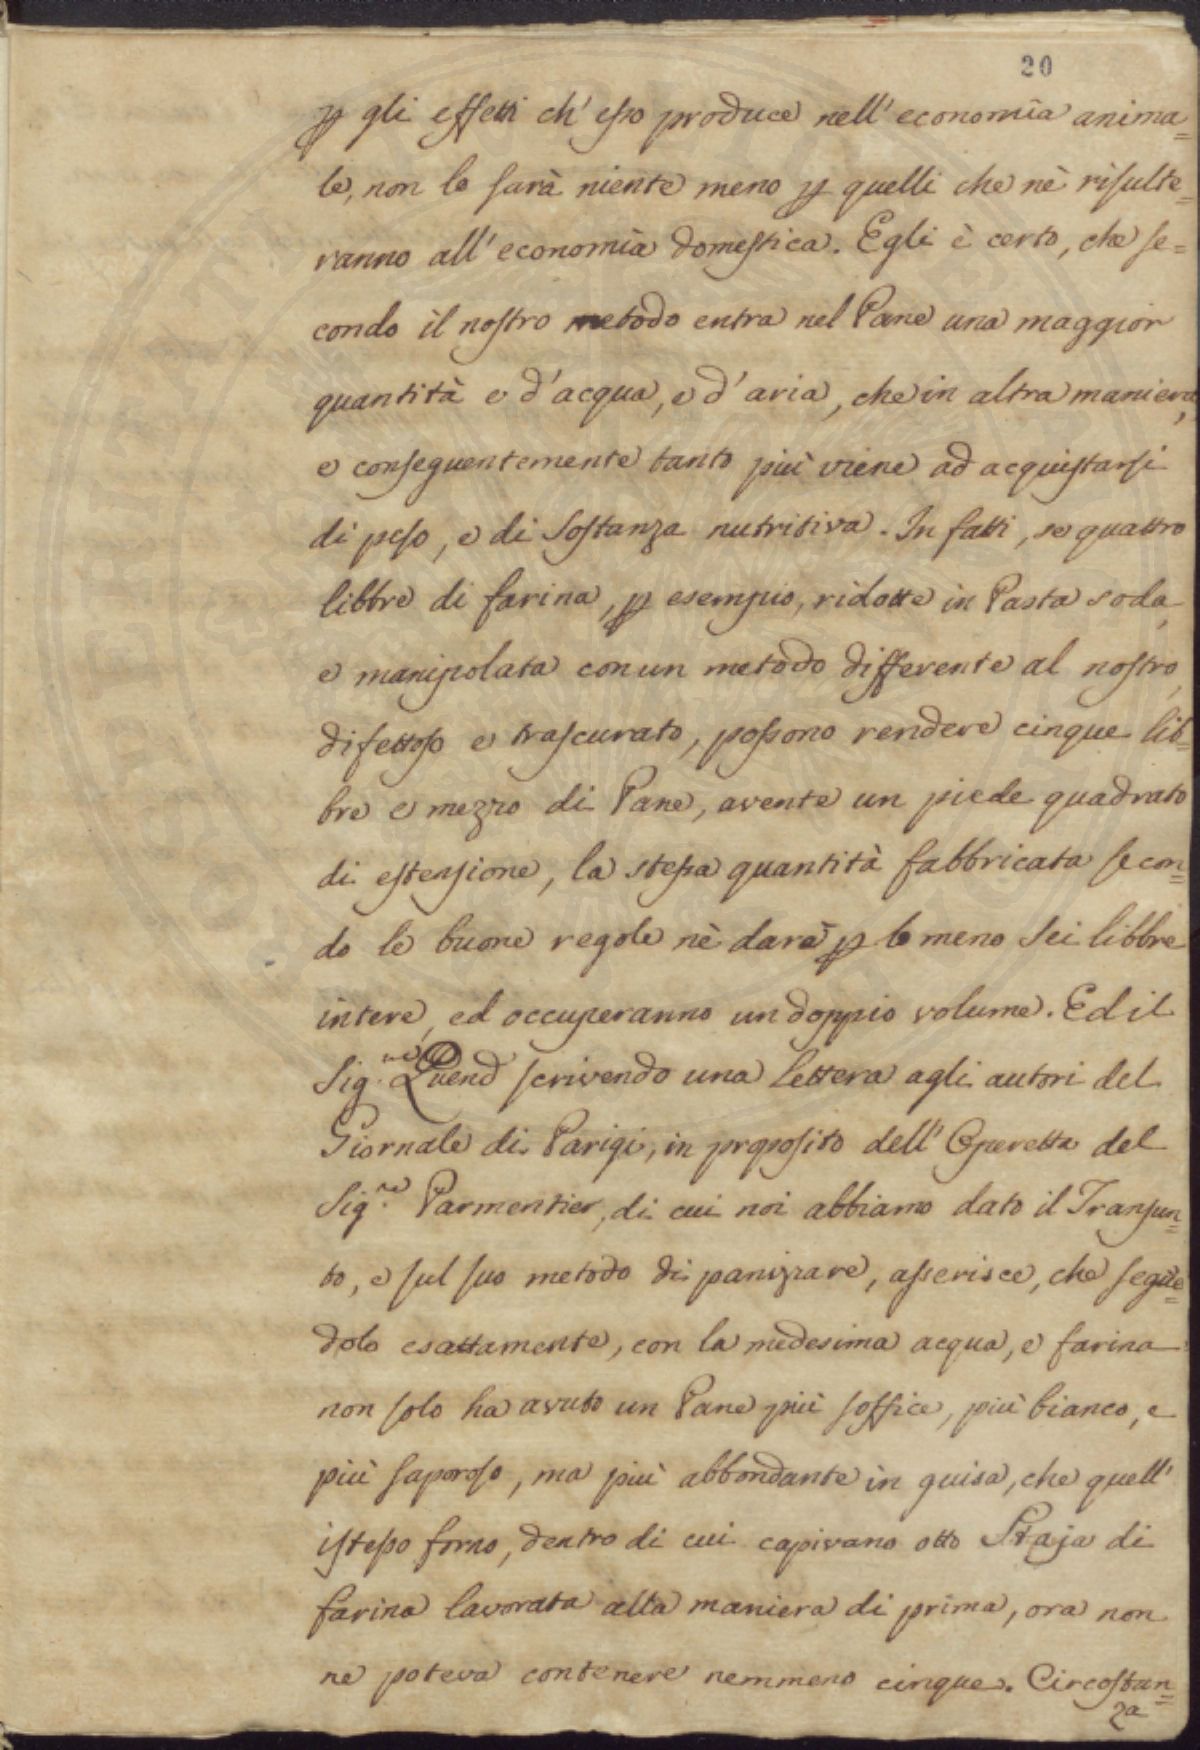 20
p gli effetti ch' esso produce nell' economia anima=
le, non lo sarà niente meno p quelli che nè risulte=
ranno all' economia domestica. Egli è certo, che se=
condo il nostro metodo entra nel Pane una maggior
quantità e d'acqua, e d'aria, che in altra maniera,
e conseguentemente tanto più viene ad acquistarsi
di peso, e di Sostanza nutritiva. In fatti, se quattro
libbre di farina, p esempio, ridotte in Pasta soda,
e manipolata con un metodo differente al nostro,
difettoso e trascurato, possono rendere cinque lib=
bre e mezzo di Pane, avente un piede quadrato
di estensione, la stessa quantità fabbricata secon=
do le buone regole nè darà p lo meno Sei libbre
intere, ed occuperanno un doppio volume. Ed il
Sig.re scrivendo una Lettera agli autori del
Giornale di Parigi, in proposito dell' Operetta del
Sig.re Parmentier, di cui noi abbiamo dato il Transun=
to, e sul suo metodo di panizzare, asserisce, che seguē=
dolo esattamente, con la medesima acqua, e farina
non solo ha avuto un Pane più soffice, più bianco, e
più saporoso, ma più abbondante in guisa, che quell'
istesso forno, dentro di cui capivano otto Staja di
farina lavorata alla maniera di prima, ora non
ne poteva contenere nemmeno cinque. Circostan=
za